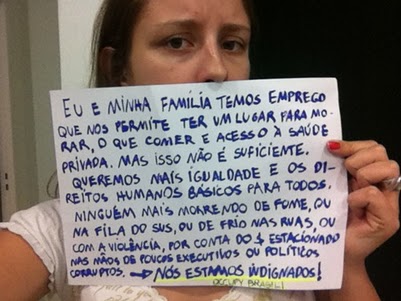 EU E MINHA FAMÍLIA TEMOS EMPREGO
QUE NOS PERMITE TER UM LUGAR PARA MO-
RAR, O QUE COMER E ACESSO À SAÚDE
PRIVADA. MAS ISSO NÃO É SUFICIENTE.
QUEREMOS MAIS IGUALDADE E OS DI-
REITOS HUMANOS BÁSICOS PARA TODOS.
NINGUÉM MAIS MORRENDO DE FOME, OU
NA FILA DO SUS, OU DE FRIO NAS RUAS, OU
COM A VIOLÊNCIA, POR CONTA DO $ ESTACIONADO
NAS MÃOS DE POUCOS EXECUTIVOS OU POLÍTICOS
CORRUPTOS. → NÓS ESTAMOS INDIGNADOS!
OCCUPY BRASIL!